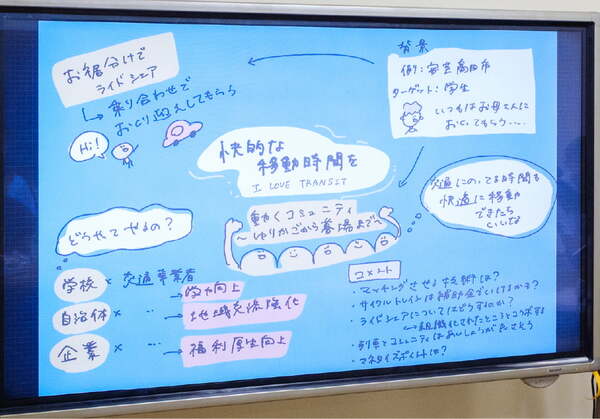 お裾分けで
ライドシェア
↳ 乗り合わせで
おくり迎えしてもらう
Hi!
背景
例）：安芸高田市
ターゲット：学生
いつもはお母さんに
おくってもらう....
快的な
移動時間を
I LOVE TRANSIT
動くコミュニティ
〜ゆりかごから墓場まで〜
交通にのってる時間も
快適に移動
できたら
いいな
どうやってやるの？
学校 × 交通事業者
→ 学力向上
自治体 × 〃
→ 地域交流強化
企業 × 〃
→ 福利厚生向上
コメント
・マッチングさせる技術は？
・サイクルトレインは補助金でいけるか？
・ライドシェアについてはどうするのか？
↳ 組織化されたところとコラボする
・列車とコミュニティはあいしょうが良さそう
・マネタイズポイントは？